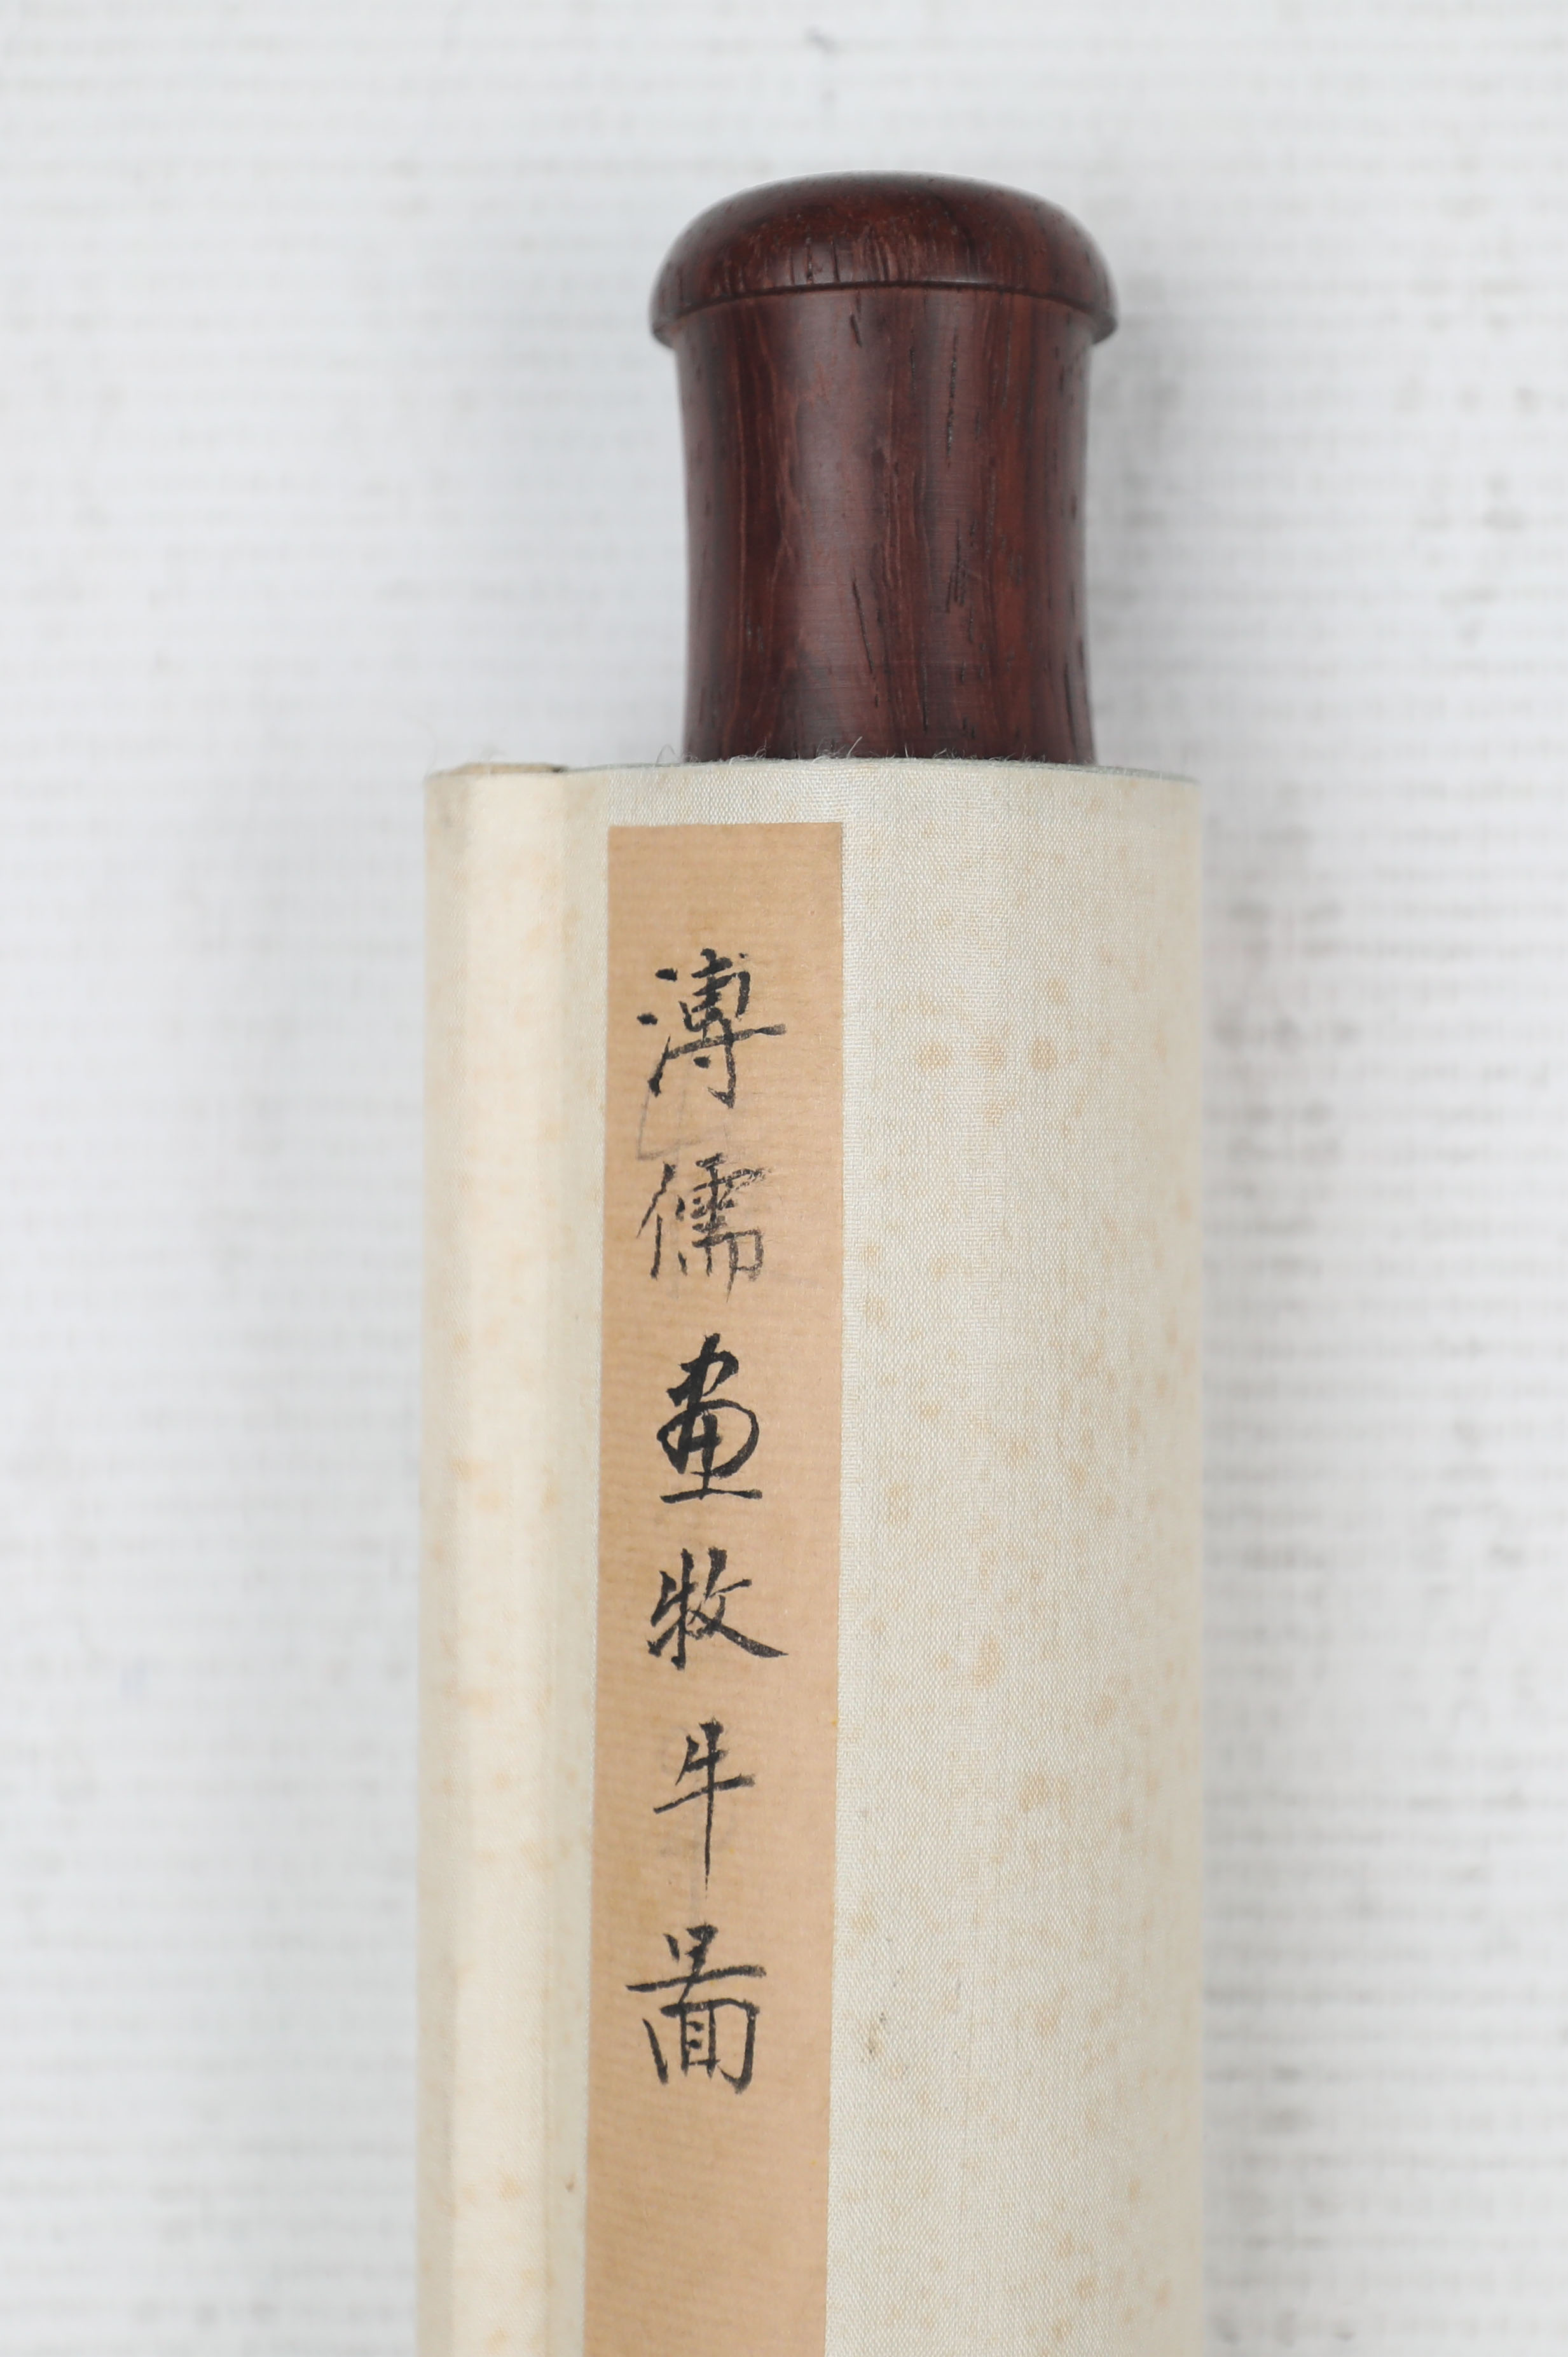 溥儒画牧牛圖